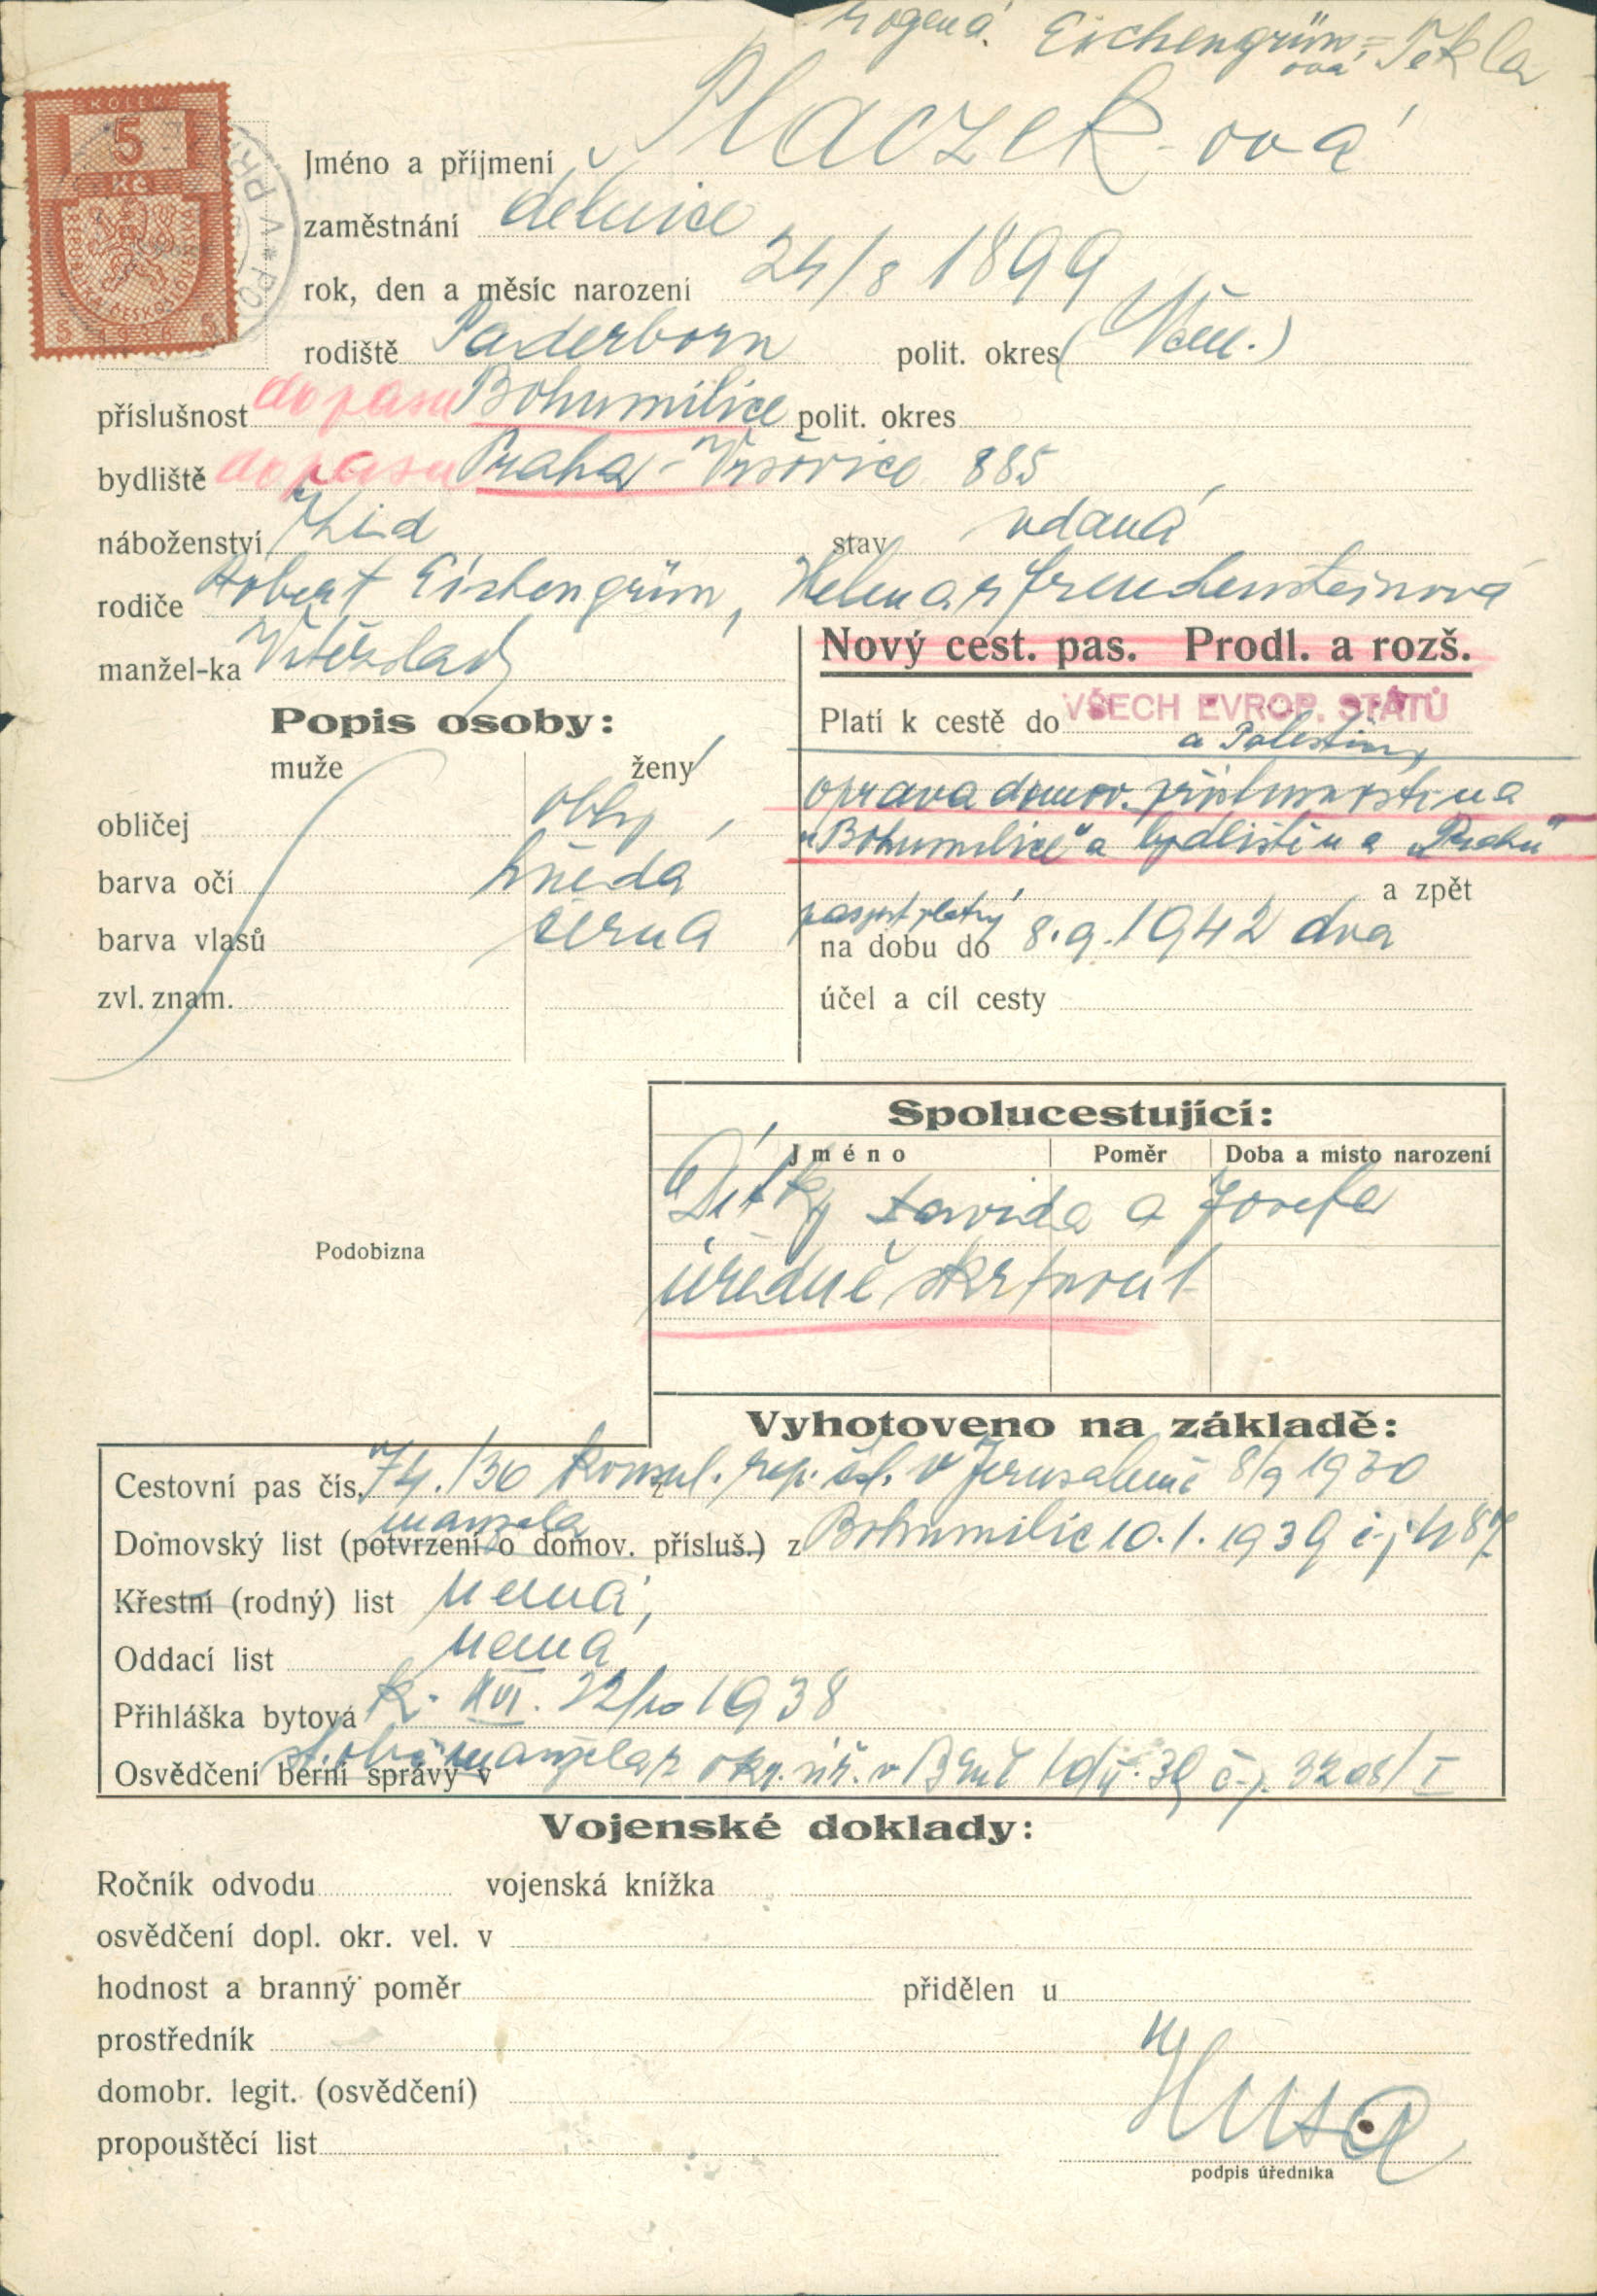 rozená Eichengrün-ová Tekla
KOLEK
5
Kč
5 1936 5
Jméno a příjmení Placzek-ová
zaměstnání dělnice
rok, den a měsíc narození 24/8 1899
rodiště Paderborn polit. okres (Něm.)
příslušnost do pasu Bohumilice polit. okres
bydliště do pasu Praha-Vršovice 885
náboženství žid stav vdaná
rodiče Robert Eichengrün, Helena r Freudensteinová
manžel-ka Vítězslav
Nový cest. pas. Prodl. a rozš.
Popis osoby:
Platí k cestě do VŠECH EVROP. STÁTŮ
a Palestiny
muže ženy
oprava domov. příslušnosti na
obličej oblý
"Bohumilice" a bydliště na "Prahu"
barva očí hnědá
a zpět
barva vlasů černá
pasport platný
na dobu do 8.9.1942 dva
zvl. znam.
účel a cíl cesty
Spolucestující:
Jméno Poměr Doba a místo narození
Dítky Davida a Josefa
úředně škrtnout
Podobizna
Vyhotoveno na základě:
Cestovní pas čís. 74./30 konsul. rep. čsl. v Jerusalemě 8/9 1930
manžela
Domovský list (potvrzení o domov. přísluš.) z Bohumilic 10.1.1939 č.j. 487
Křestní (rodný) list nemá,
Oddací list nemá
Přihláška bytová k. XVI. 22/10 1938
Osvědčení berní správy v st. obč. manžela z okr. úř. v Brně 1939 č.j. 3208/I
Vojenské doklady:
Ročník odvodu vojenská knížka
osvědčení dopl. okr. vel. v
hodnost a branný poměr přidělen u
prostředník
domobr. legit. (osvědčení)
propouštěcí list
Husa
podpis úředníka